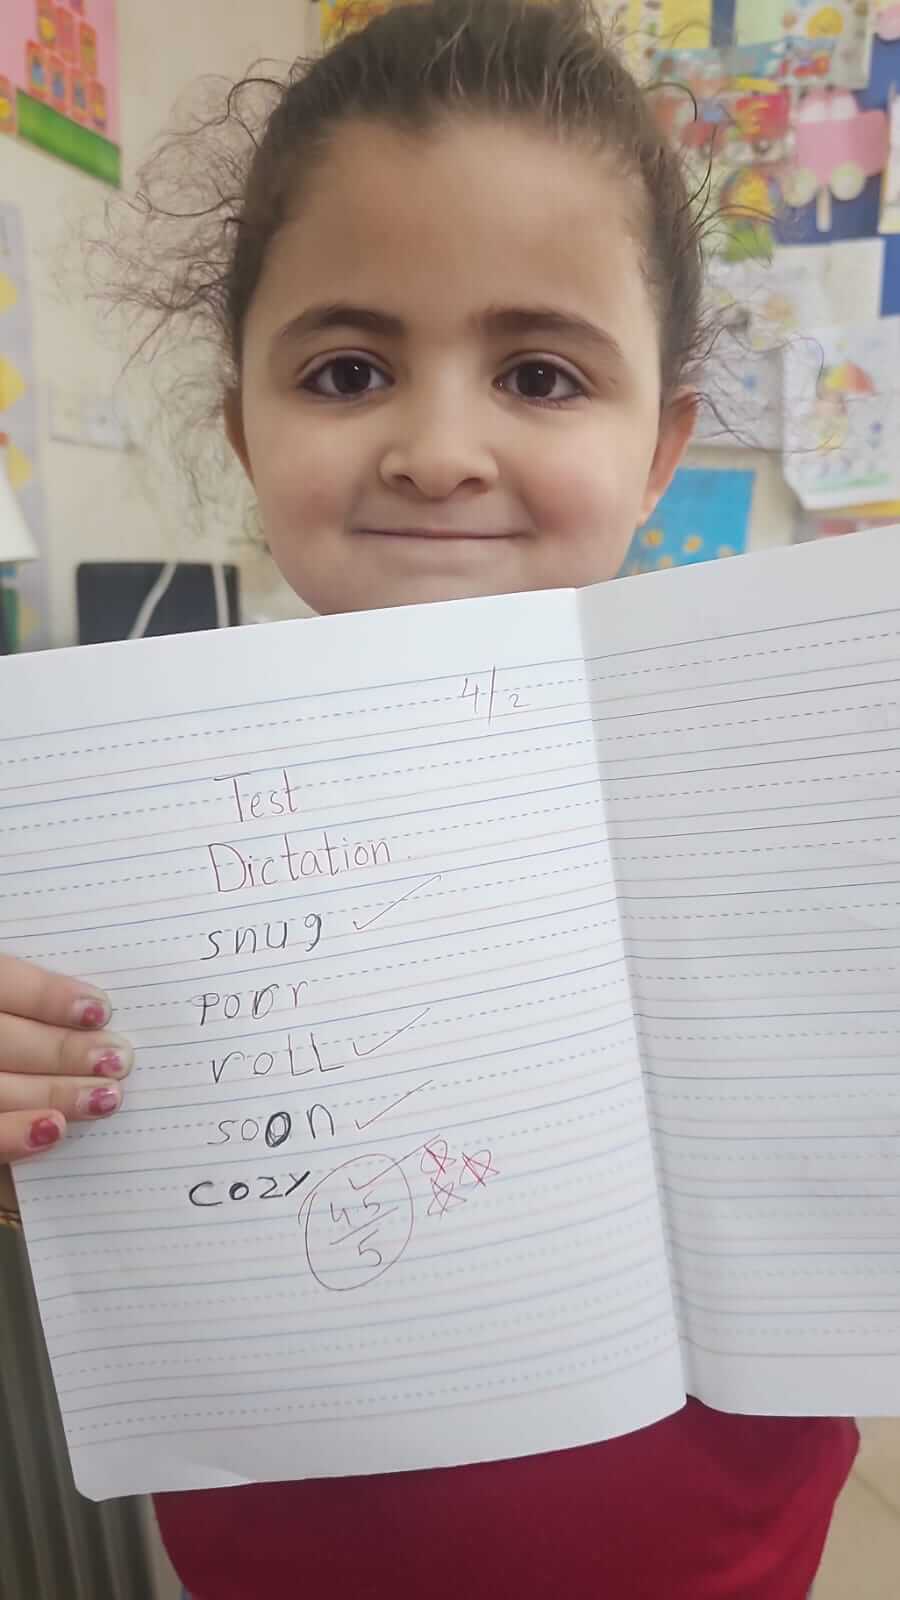 4/2
Test
Dictation.
snug
poor
roll
soon
cozy
45
5